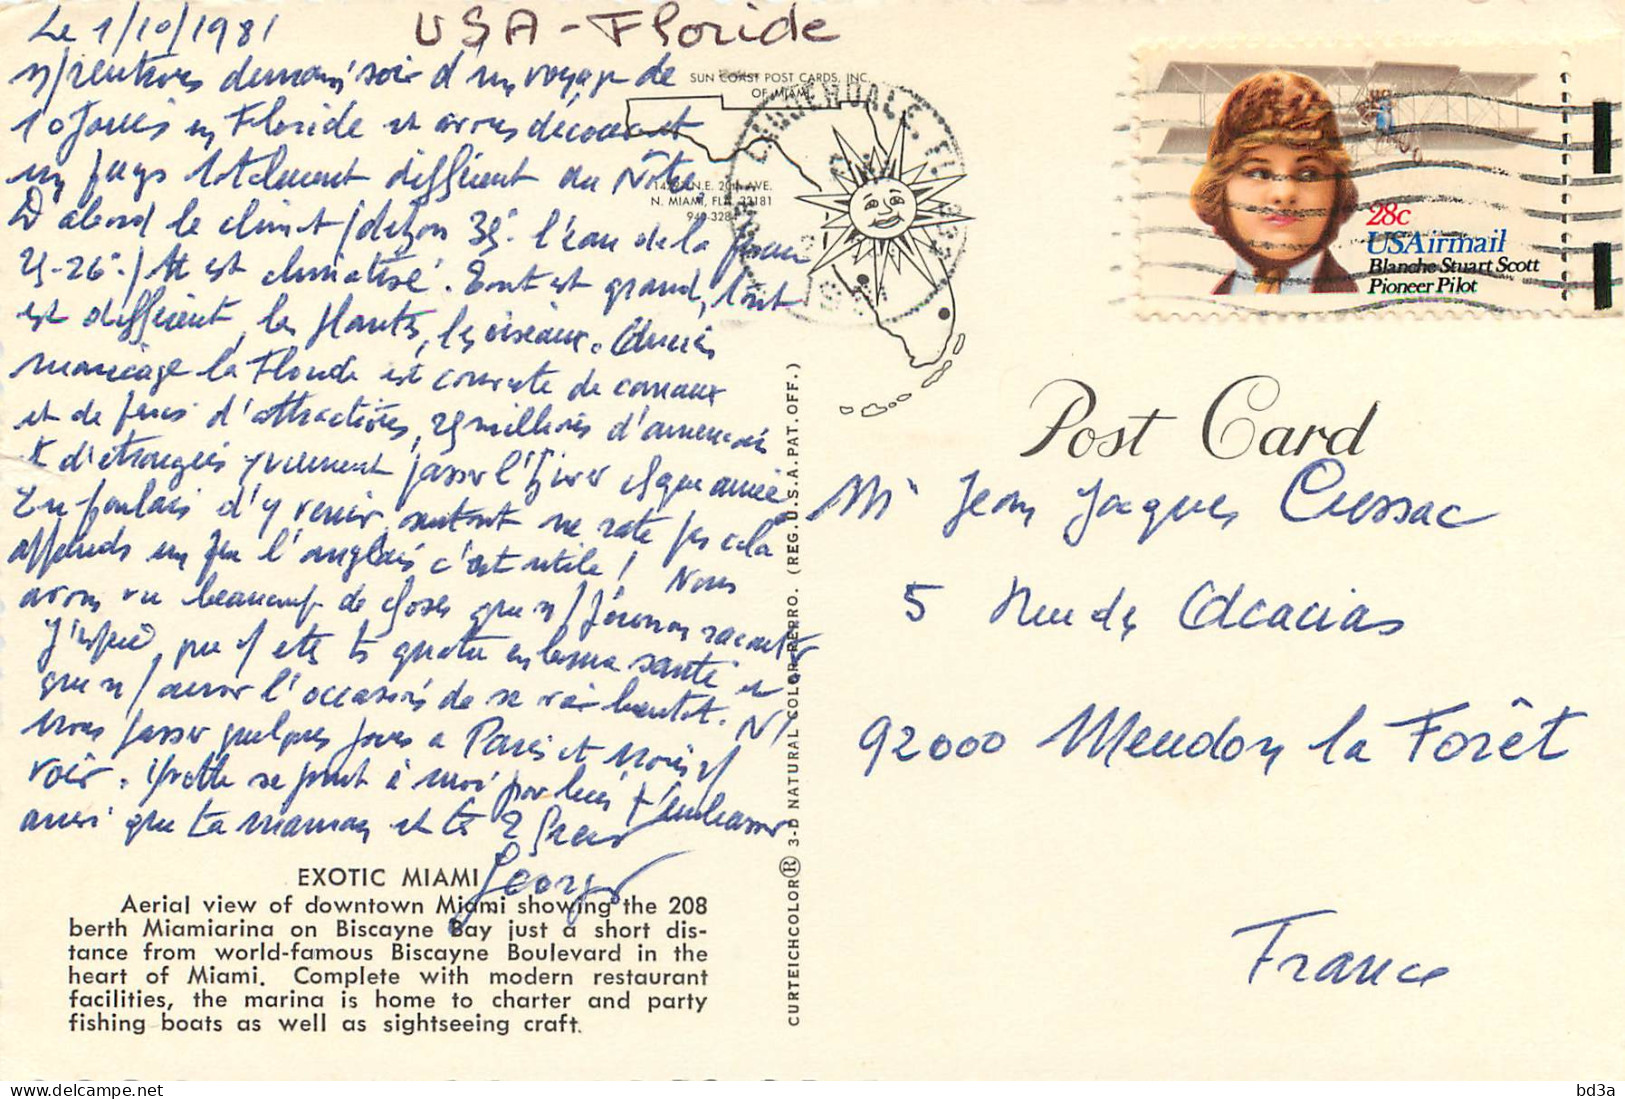 Le 1/10/1981
USA - Floride
n/rentrons demain soir d'un voyage de
10 jours en Floride et avons découvert
un pays totalement différent du Nôtre
D'abord le climat (dehors 35° l'eau de la
25-26°) tt est climatisé. Tout est grand, tout
est différent, les plantes, les oiseaux.
la Floride est couverte de canaux
et de parcs d'attractions, 25 millions d'américains
et d'étrangers y viennent passer l'hiver chaque année
Tu voulais d'y venir, surtout ne rate pas cela
apprends un peu l'anglais c'est utile ! Nous
avons vu beaucoup de choses que n/ pourrons raconter
J'espère que v/ êtes ts quatre en bonne santé et
que n/ aurons l'occasion de se voir bientot. N/
irons passer quelques jours a Paris et irons v/
voir. Yvette se joint à moi pour t'embrasser
ainsi que ta maman et tes 2
Georges
SUN COAST POST CARDS, INC.
OF MIAMI
N.E. 20th AVE.
N. MIAMI, FLA. 33181
28c
USAirmail
Blanche Stuart Scott
Pioneer Pilot
Post Card
Mr Jean Jacques Cressac
5 Rue des Acacias
92000 Meudon la Forêt
France
CURTEICHCOLOR® 3-D NATURAL COLOR REPRO. (REG. U.S.A. PAT. OFF.)
EXOTIC MIAMI
Aerial view of downtown Miami showing the 208
berth Miamiarina on Biscayne Bay just a short dis-
tance from world-famous Biscayne Boulevard in the
heart of Miami. Complete with modern restaurant
facilities, the marina is home to charter and party
fishing boats as well as sightseeing craft.
bd3a